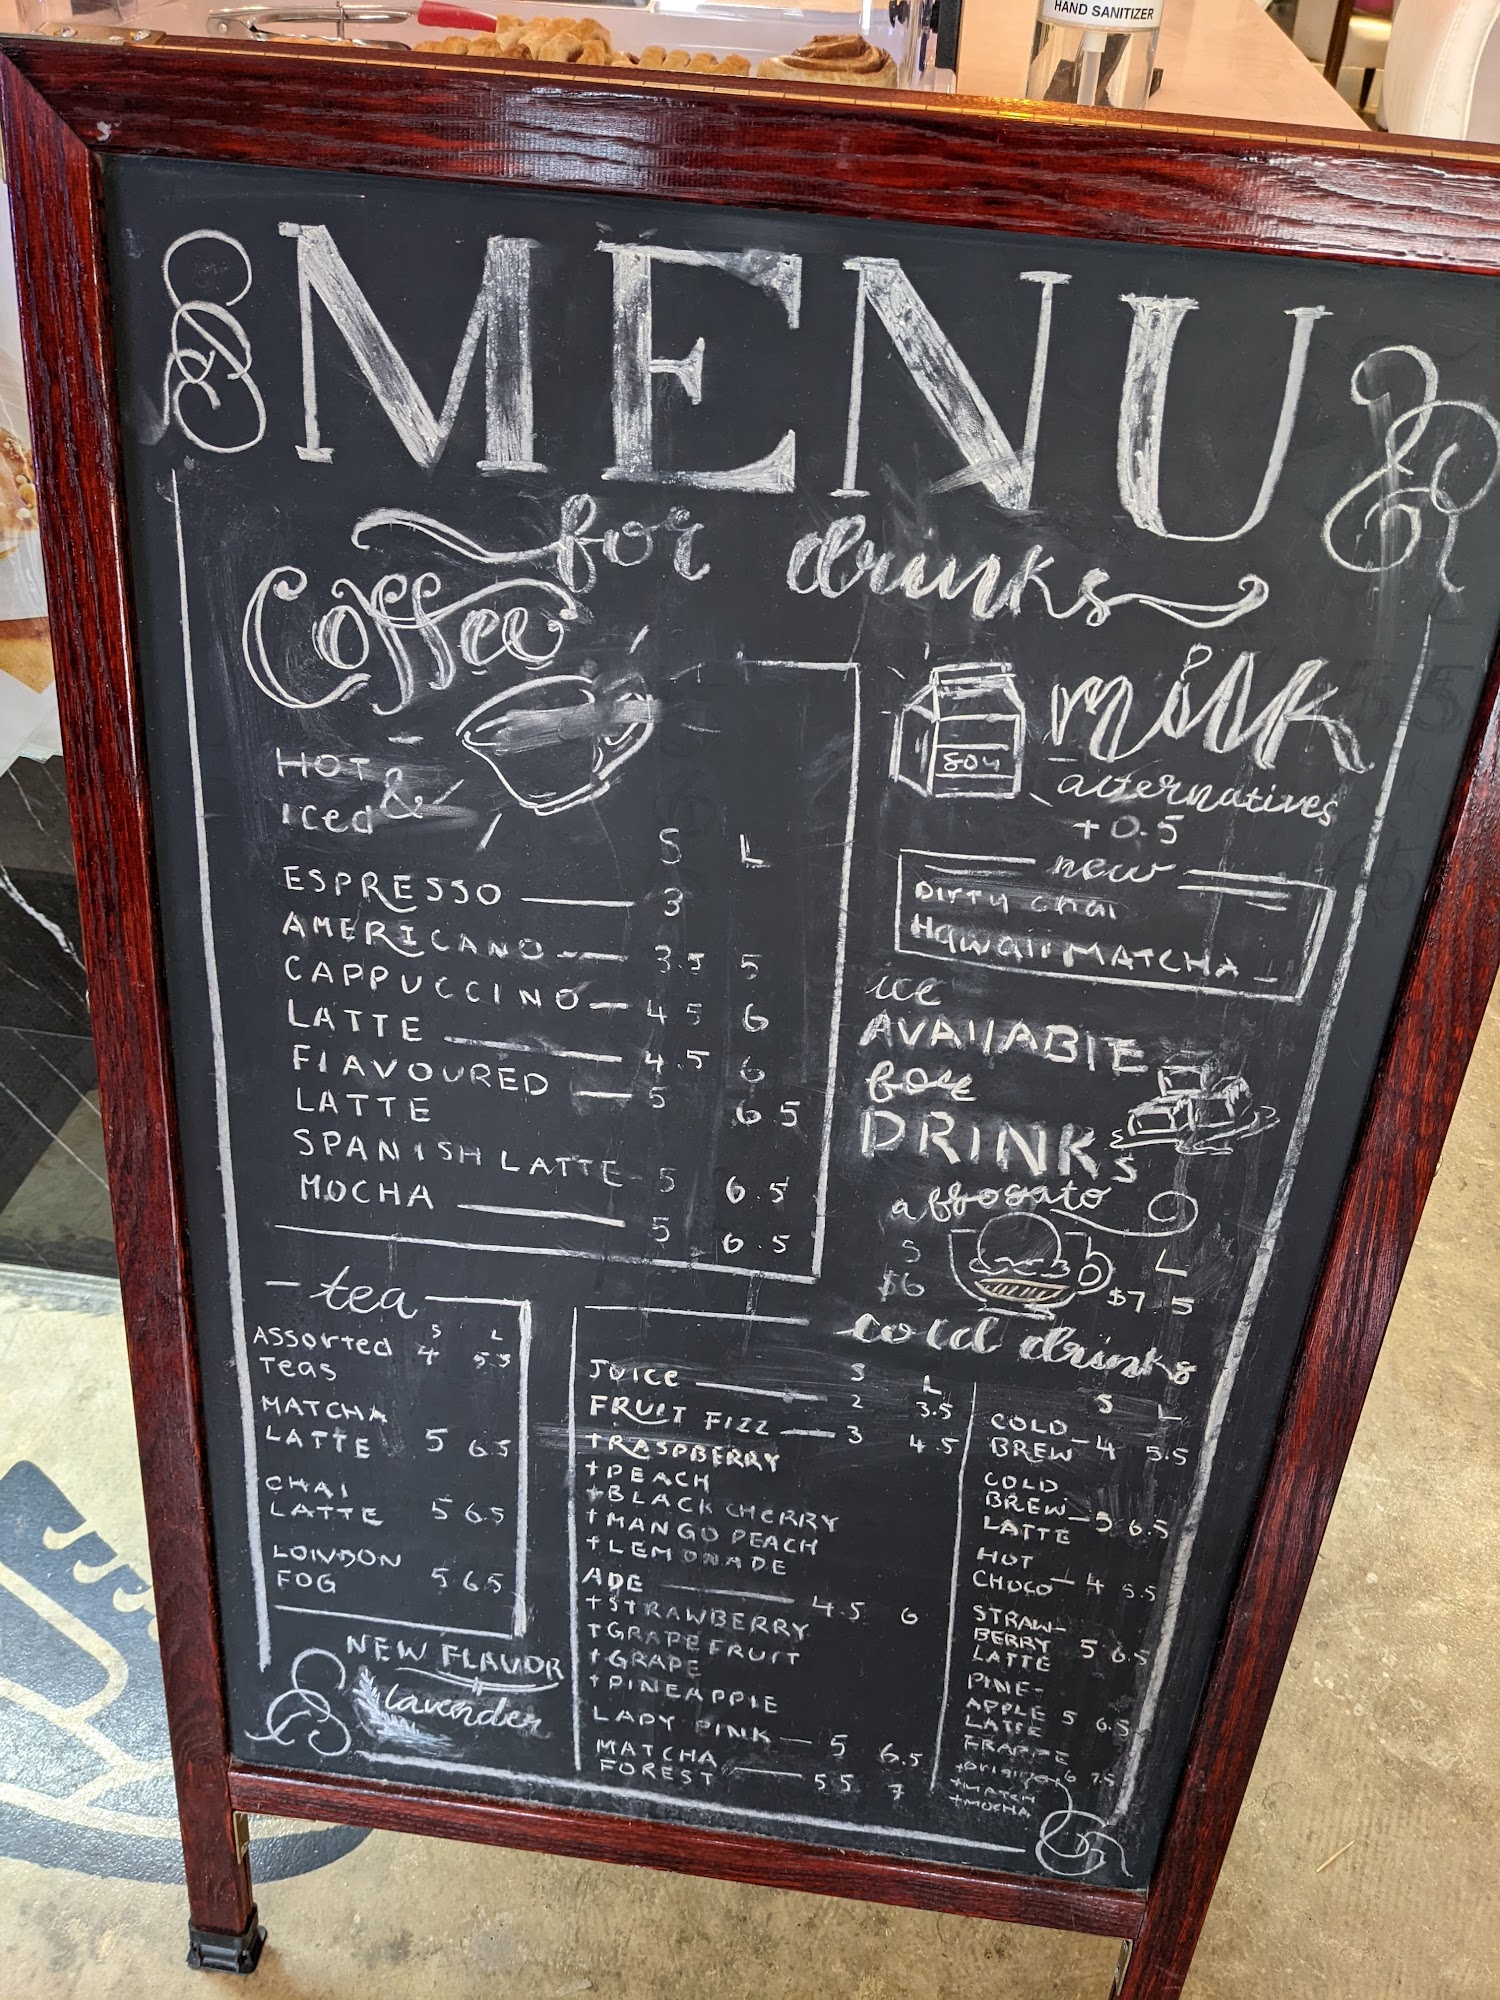 HAND SANITIZER
MENU
for drinks
Coffee
HOT &
Iced
S L
ESPRESSO 3
AMERICANO 3.5 5
CAPPUCCINO 4 5 6
LATTE 4.5 6
FLAVOURED 5 6 5
LATTE
SPANISH LATTE 5 6.5
MOCHA 5 6.5
milk
SOY
alternatives
+0.5
new
Dirty chai
Hawaii MATCHA
ice
AVAILABLE
for
DRINKS
affogato
S L
$6 $7 5
tea
S L
Assorted 4 5 5
Teas
MATCHA
LATTE 5 6 5
CHAI
LATTE 5 6 5
LONDON
FOG 5 6 5
NEW FLAVOR
lavender
cold drinks
S L
JUICE 2 3.5
FRUIT FIZZ 3 4 5
+RASPBERRY
+PEACH
+BLACK CHERRY
+MANGO PEACH
+LEMONADE
ADE 4.5 6
+STRAWBERRY
+GRAPEFRUIT
+GRAPE
+PINEAPPLE
LADY PINK 5 6.5
MATCHA
FOREST 5 5 7
S L
COLD
BREW 4 5.5
COLD
BREW 5 6.5
LATTE
HOT
CHOCO 4 5.5
STRAW-
BERRY 5 6.5
LATTE
PINE-
APPLE 5 6.5
LATTE
FRAPPE
6 7.5
+MATCH
+MOCHA